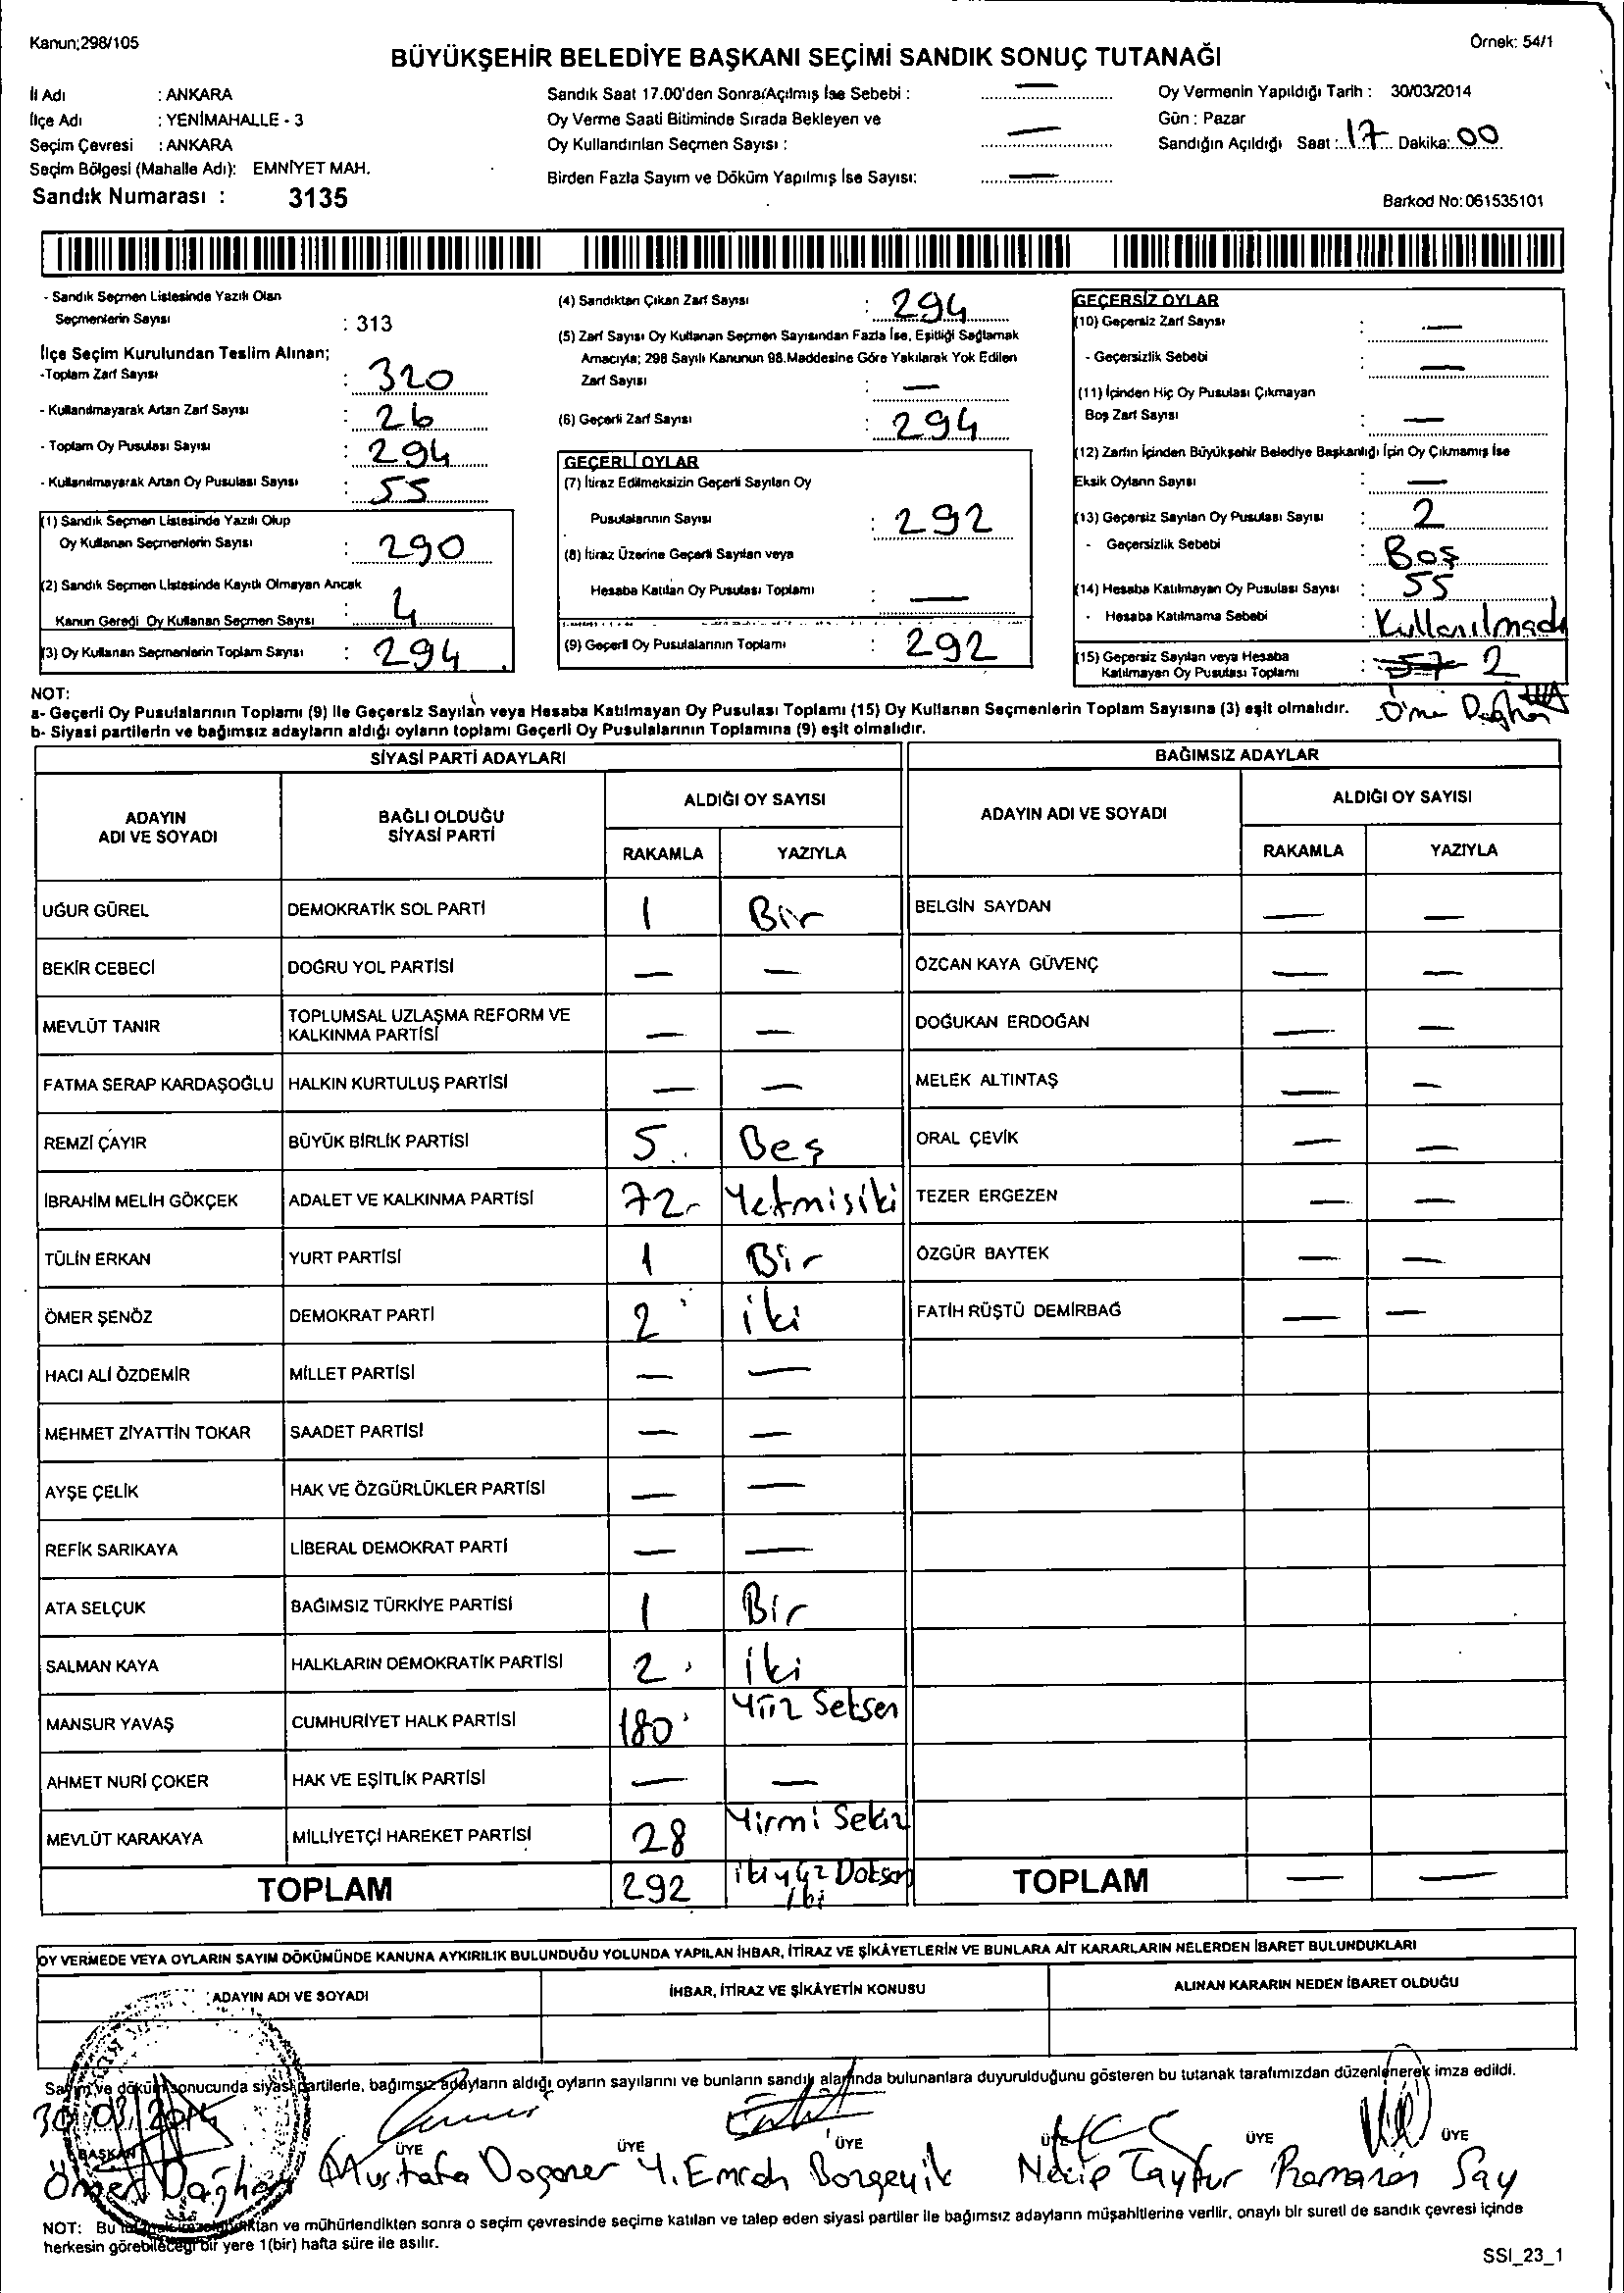 Kanun;298/105
Örnek: 54/1
BÜYÜKŞEHİR BELEDİYE BAŞKANI SEÇİMİ SANDIK SONUÇ TUTANAĞI
İl Adı : ANKARA
İlçe Adı : YENİMAHALLE - 3
Seçim Çevresi : ANKARA
Seçim Bölgesi (Mahalle Adı): EMNİYET MAH.
Sandık Numarası : 3135
Sandık Saat 17.00'den Sonra Açılmış İse Sebebi : —
Oy Verme Saati Bitiminde Sırada Bekleyen ve
Oy Kullandırılan Seçmen Sayısı : —
Birden Fazla Sayım ve Döküm Yapılmış İse Sayısı: —
Oy Vermenin Yapıldığı Tarih : 30/03/2014
Gün : Pazar
Sandığın Açıldığı Saat : 17 Dakika: 00
Barkod No: 061535101
- Sandık Seçmen Listesinde Yazılı Olan
Seçmenlerin Sayısı : 313
İlçe Seçim Kurulundan Teslim Alınan;
-Toplam Zarf Sayısı : 320
- Kullanılmayarak Artan Zarf Sayısı : 26
- Toplam Oy Pusulası Sayısı : 294
- Kullanılmayarak Artan Oy Pusulası Sayısı : 55
(1) Sandık Seçmen Listesinde Yazılı Olup
Oy Kullanan Seçmenlerin Sayısı : 290
(2) Sandık Seçmen Listesinde Kayıtlı Olmayan Ancak
Kanun Gereği Oy Kullanan Seçmen Sayısı : 4
(3) Oy Kullanan Seçmenlerin Toplam Sayısı : 294
(4) Sandıktan Çıkan Zarf Sayısı : 294
(5) Zarf Sayısı Oy Kullanan Seçmen Sayısından Fazla İse, Eşitliği Sağlamak
Amacıyla; 298 Sayılı Kanunun 98.Maddesine Göre Yakılarak Yok Edilen
Zarf Sayısı : —
(6) Geçerli Zarf Sayısı : 294
GEÇERLİ OYLAR
(7) İtiraz Edilmeksizin Geçerli Sayılan Oy
Pusulalarının Sayısı : 292
(8) İtiraz Üzerine Geçerli Sayılan veya
Hesaba Katılan Oy Pusulası Toplamı : —
(9) Geçerli Oy Pusulalarının Toplamı : 292
GEÇERSİZ OYLAR
(10) Geçersiz Zarf Sayısı : —
- Geçersizlik Sebebi : —
(11) İçinden Hiç Oy Pusulası Çıkmayan
Boş Zarf Sayısı : —
(12) Zarfın İçinden Büyükşehir Belediye Başkanlığı İçin Oy Çıkmamış İse
Eksik Oyların Sayısı : —
(13) Geçersiz Sayılan Oy Pusulası Sayısı : 2
- Geçersizlik Sebebi : Boş
(14) Hesaba Katılmayan Oy Pusulası Sayısı : 55
- Hesaba Katılmama Sebebi : Kullanılmadı
(15) Geçersiz Sayılan veya Hesaba
Katılmayan Oy Pusulası Toplamı : 57 2
NOT:
a- Geçerli Oy Pusulalarının Toplamı (9) İle Geçersiz Sayılan veya Hesaba Katılmayan Oy Pusulası Toplamı (15) Oy Kullanan Seçmenlerin Toplam Sayısına (3) eşit olmalıdır.
b- Siyasi partilerin ve bağımsız adayların aldığı oyların toplamı Geçerli Oy Pusulalarının Toplamına (9) eşit olmalıdır.
SİYASİ PARTİ ADAYLARI
BAĞIMSIZ ADAYLAR
ADAYIN ADI VE SOYADI
BAĞLI OLDUĞU SİYASİ PARTİ
ALDIĞI OY SAYISI
RAKAMLA YAZIYLA
ADAYIN ADI VE SOYADI
ALDIĞI OY SAYISI
RAKAMLA YAZIYLA
UĞUR GÜREL DEMOKRATİK SOL PARTİ 1 Bir BELGİN SAYDAN — —
BEKİR CEBECİ DOĞRU YOL PARTİSİ — — ÖZCAN KAYA GÜVENÇ — —
MEVLÜT TANIR TOPLUMSAL UZLAŞMA REFORM VE KALKINMA PARTİSİ — — DOĞUKAN ERDOĞAN — —
FATMA SERAP KARDAŞOĞLU HALKIN KURTULUŞ PARTİSİ — — MELEK ALTINTAŞ — —
REMZİ ÇAYIR BÜYÜK BİRLİK PARTİSİ 5 Beş ORAL ÇEVİK — —
İBRAHİM MELİH GÖKÇEK ADALET VE KALKINMA PARTİSİ 72 Yetmisiki TEZER ERGEZEN — —
TÜLİN ERKAN YURT PARTİSİ 1 Bir ÖZGÜR BAYTEK — —
ÖMER ŞENÖZ DEMOKRAT PARTİ 2 iki FATİH RÜŞTÜ DEMİRBAĞ — —
HACI ALİ ÖZDEMİR MİLLET PARTİSİ — —
MEHMET ZİYATTİN TOKAR SAADET PARTİSİ — —
AYŞE ÇELİK HAK VE ÖZGÜRLÜKLER PARTİSİ — —
REFİK SARIKAYA LİBERAL DEMOKRAT PARTİ — —
ATA SELÇUK BAĞIMSIZ TÜRKİYE PARTİSİ 1 Bir
SALMAN KAYA HALKLARIN DEMOKRATİK PARTİSİ 2 iki
MANSUR YAVAŞ CUMHURİYET HALK PARTİSİ 180 Yüz Seksen
AHMET NURİ ÇOKER HAK VE EŞİTLİK PARTİSİ — —
MEVLÜT KARAKAYA MİLLİYETÇİ HAREKET PARTİSİ 28 Yirmi Sekiz
TOPLAM 292 ikiyüz Doksan iki TOPLAM — —
OY VERMEDE VEYA OYLARIN SAYIM DÖKÜMÜNDE KANUNA AYKIRILIK BULUNDUĞU YOLUNDA YAPILAN İHBAR, İTİRAZ VE ŞİKÂYETLERİN VE BUNLARA AİT KARARLARIN NELERDEN İBARET BULUNDUKLARI
ADAYIN ADI VE SOYADI İHBAR, İTİRAZ VE ŞİKÂYETİN KONUSU ALINAN KARARIN NEDEN İBARET OLDUĞU
Sayım ve döküm sonucunda siyasi partilerle, bağımsız adayların aldığı oyların sayılarını ve bunların sandık alanında bulunanlara duyurulduğunu gösteren bu tutanak tarafımızdan düzenlenerek imza edildi.
30/03/2014
BAŞKAN ÜYE ÜYE ÜYE ÜYE ÜYE ÜYE
Ömer Dağhan Mustafa Doganer Y. Emrah Bozgeyik Necip Tayfur Ramazan Say
NOT: Bu tutanak ve mühürlendikten sonra o seçim çevresinde seçime katılan ve talep eden siyasi partiler ile bağımsız adayların müşahitlerine verilir, onaylı bir sureti de sandık çevresi içinde
herkesin görebileceği bir yere 1(bir) hafta süre ile asılır.
SSI_23_1